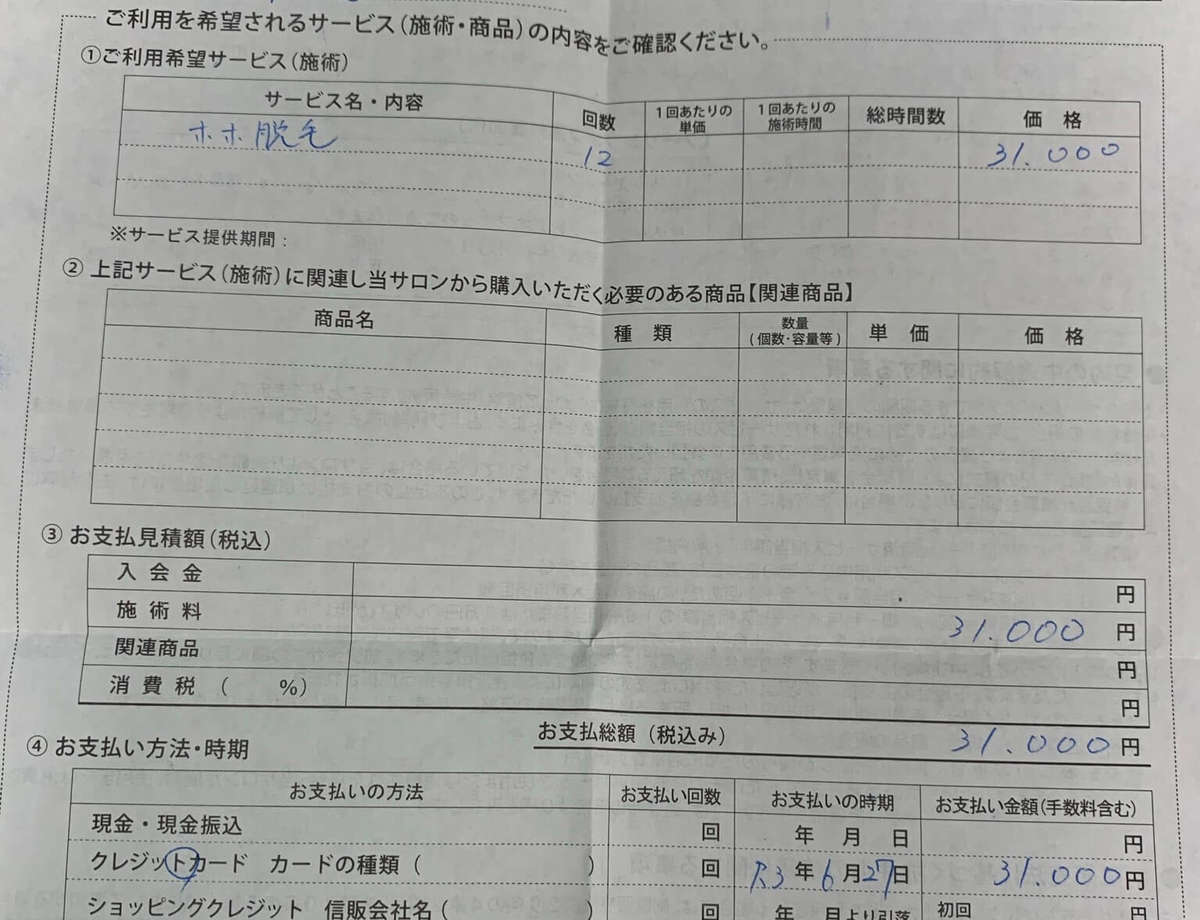 ご利用を希望されるサービス(施術・商品)の内容をご確認ください。
①ご利用希望サービス(施術)
サービス名・内容 回数 1回あたりの単価 1回あたりの施術時間 総時間数 価 格
ホホ脱毛 12 31.000
※サービス提供期間:
② 上記サービス(施術)に関連し当サロンから購入いただく必要のある商品【関連商品】
商品名 種 類 数量(個数・容量等) 単 価 価 格
③ お支払見積額(税込)
入 会 金 円
施 術 料 31.000 円
関連商品 円
消 費 税 ( %) 円
お支払総額(税込み) 31.000 円
④ お支払い方法・時期
お支払いの方法 お支払い回数 お支払いの時期 お支払い金額(手数料含む)
現金・現金振込 回 年 月 日 円
クレジットカード カードの種類( ) 回 R3年6月27日 31.000円
ショッピングクレジット 信販会社名( ) 回 年 月より引落 初回 円